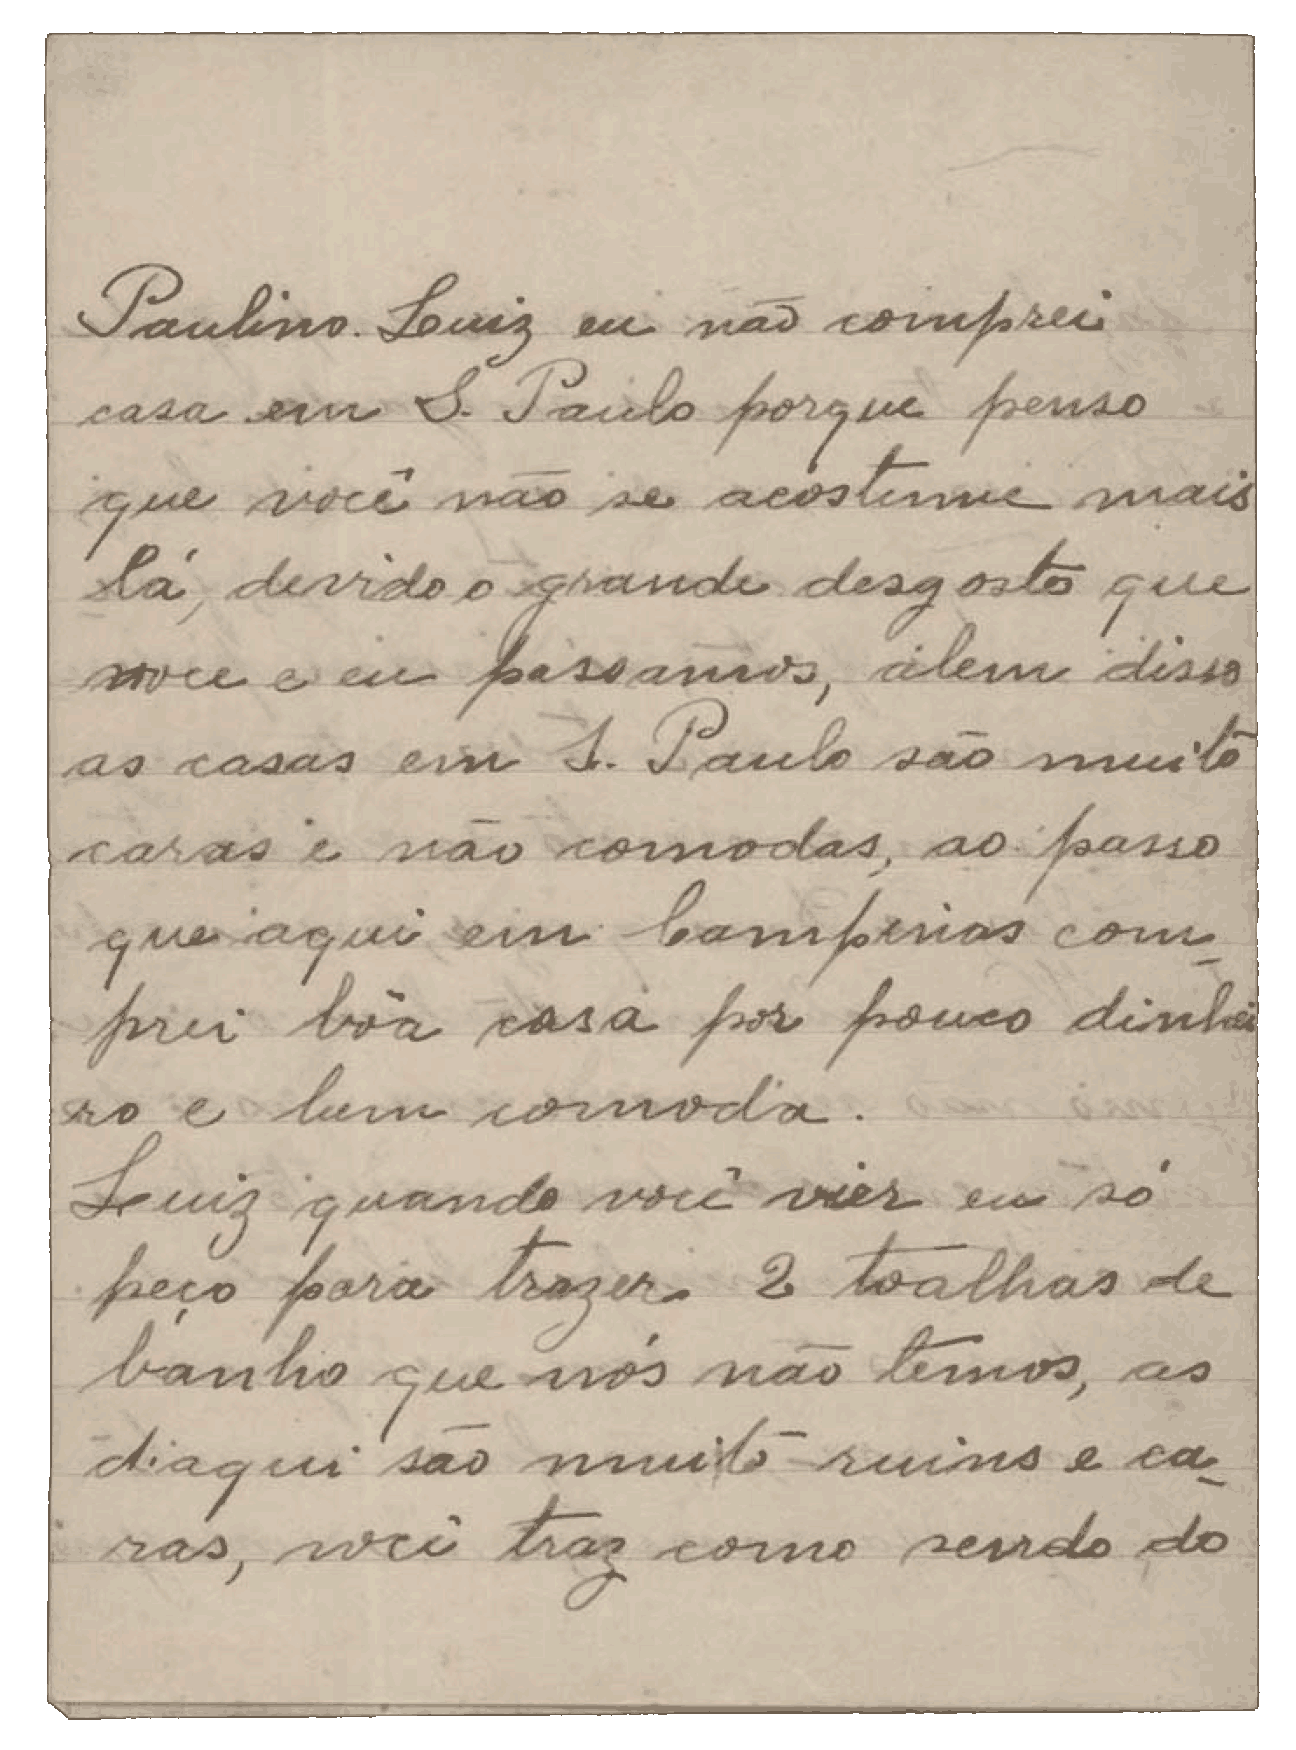 Paulino. Luiz eu não comprei
casa em S. Paulo porque penso
que você não se acostume mais
lá, devido o grande desgosto que
voce e eu passamos, alem disso
as casas em S. Paulo são muito
caras e não comodas, ao passo
que aqui em Campinas com-
prei bôa casa por pouco dinhei
ro e bem comoda.
Luiz quando você vier eu só
peço para trazer 2 toalhas de
banho que nós não temos, as
diaqui são muito ruins e ca-
ras, você traz como sendo do